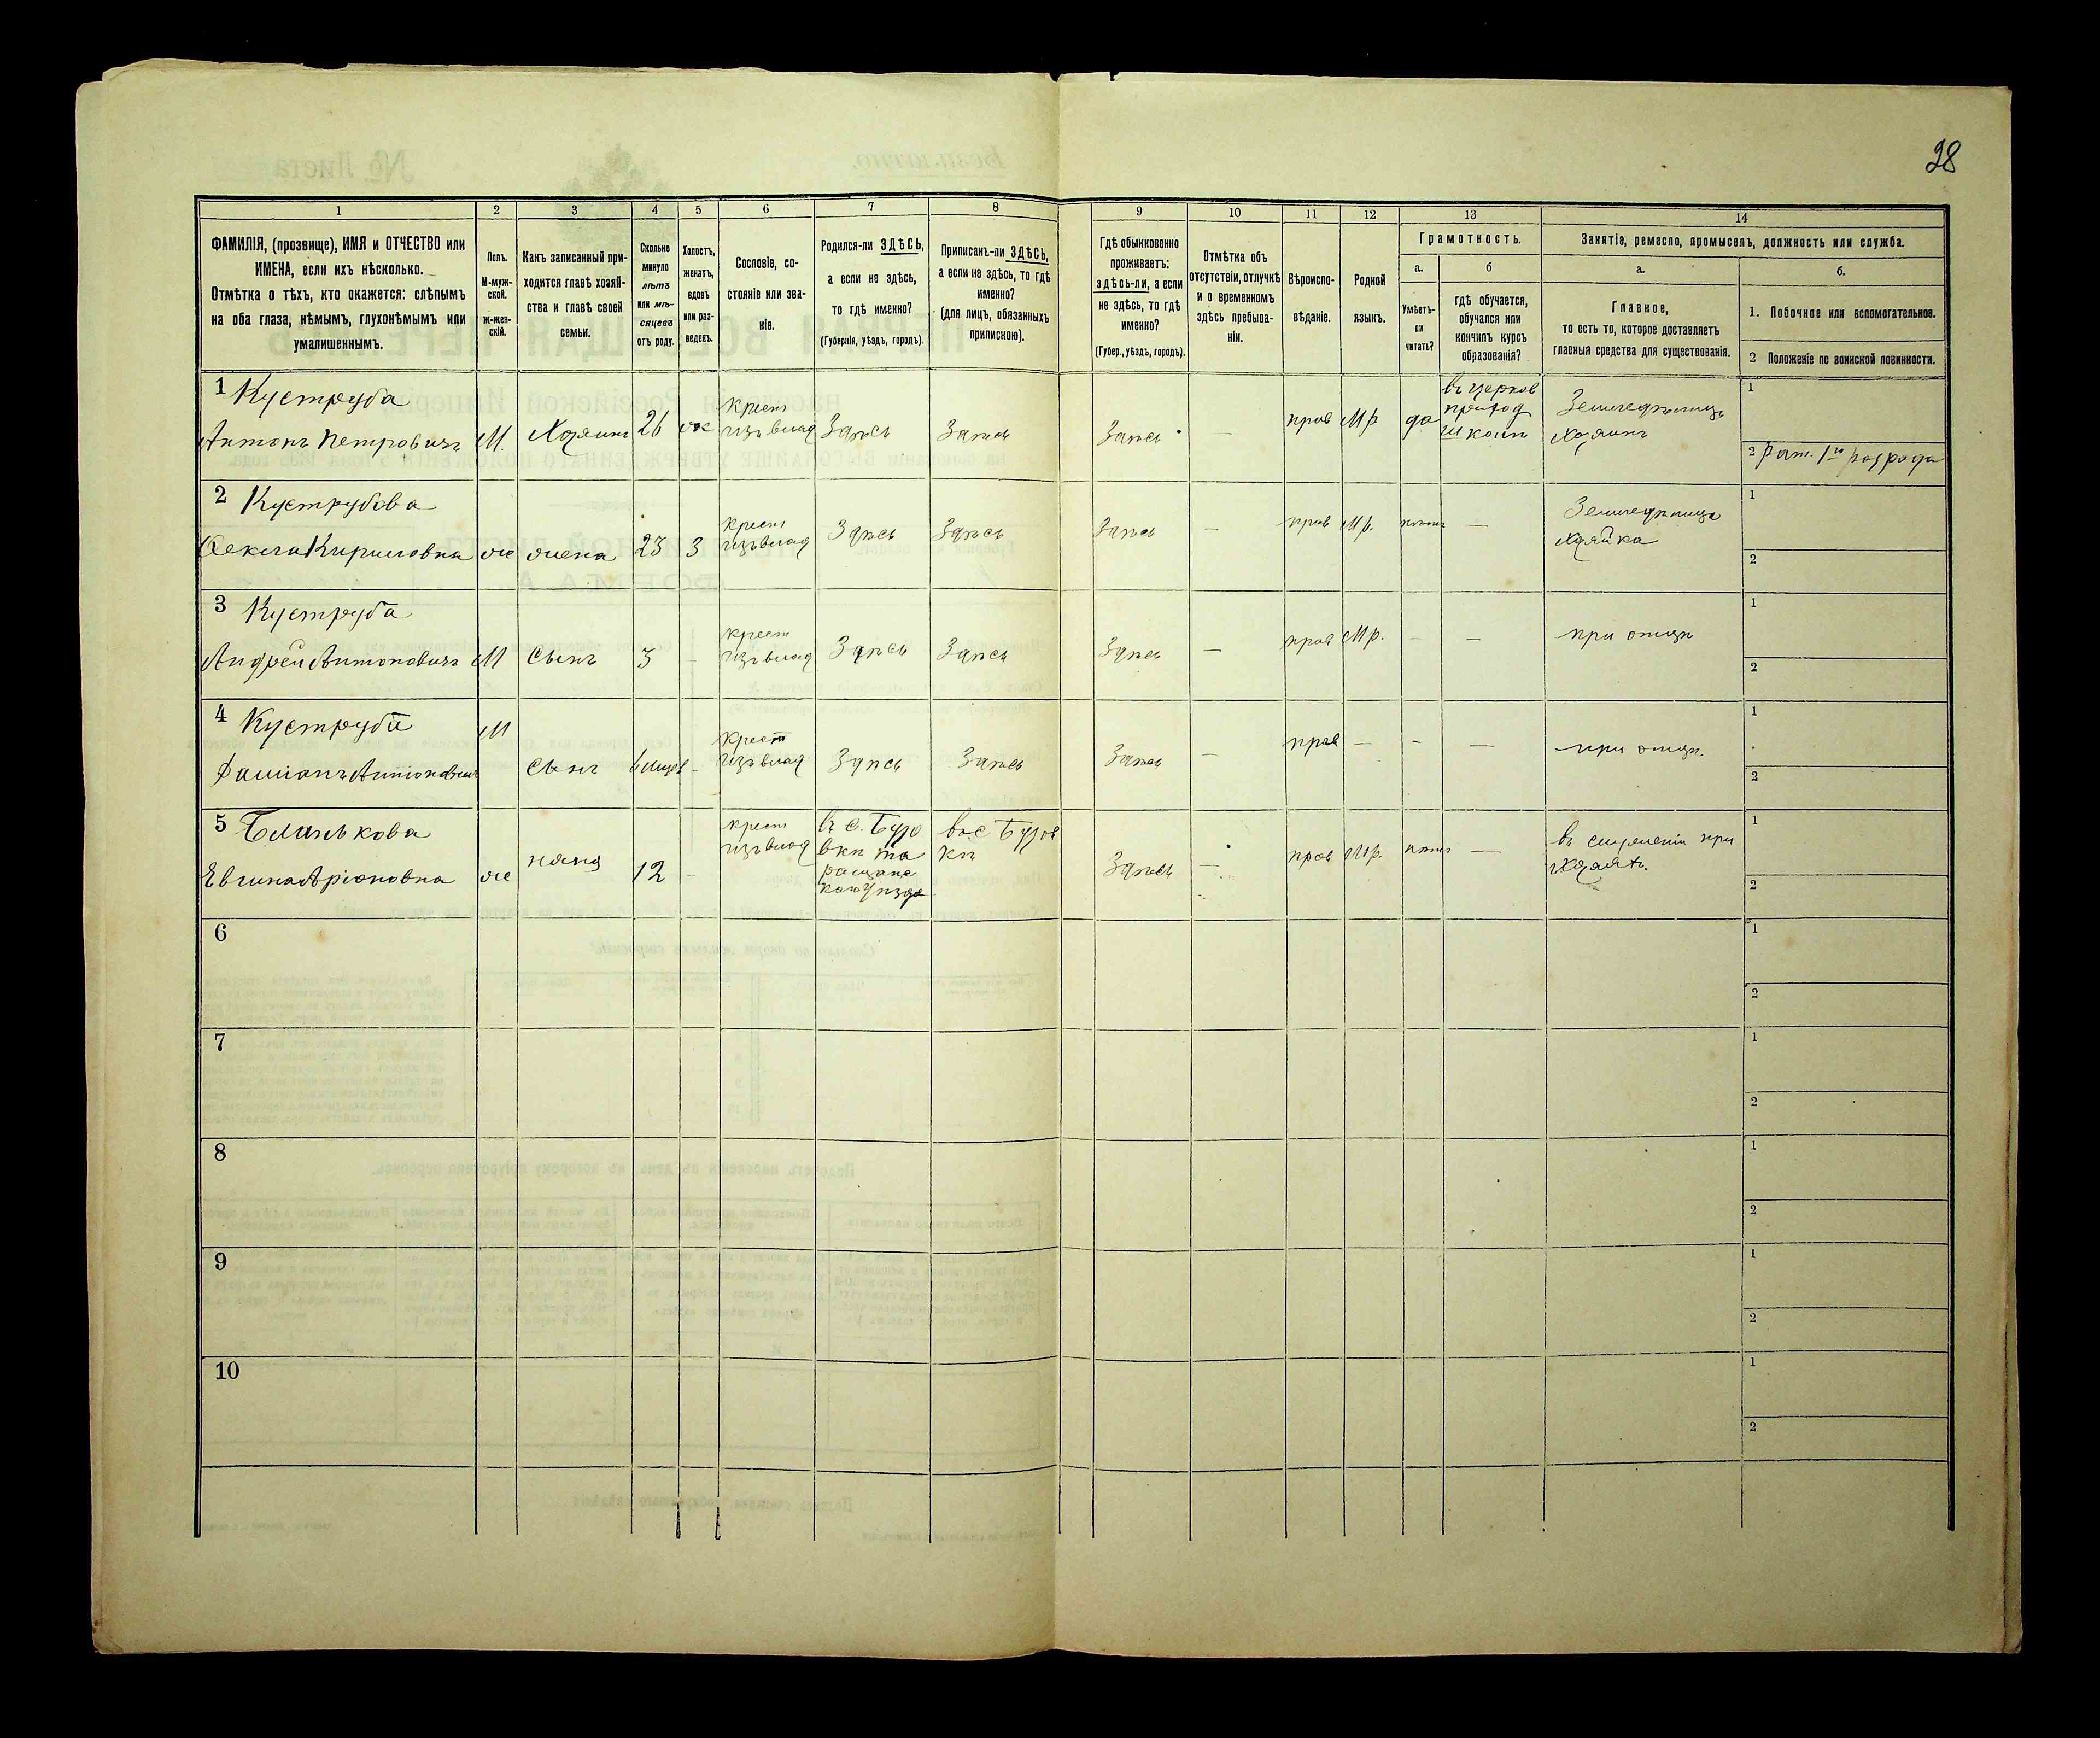 28
1
2
3
4
5
6
7
8
9
10
11
12
13
14
ФАМИЛІЯ, (прозвище), ИМЯ и ОТЧЕСТВО или
ИМЕНА, если ихъ нѣсколько.
Отмѣтка о тѣхъ, кто окажется: слѣпымъ
на оба глаза, нѣмымъ, глухонѣмымъ или
умалишеннымъ.
Полъ.
М-муж-
ской.
ж-жен-
скій.
Какъ записанный при-
ходится главѣ хозяй-
ства и главѣ своей
семьи.
Сколько
минуло
лѣтъ
или мѣ-
сяцевъ
отъ роду.
Холостъ,
женатъ,
вдовъ
или раз-
веденъ.
Сословіе, со-
стояніе или зва-
ніе.
Родился-ли ЗДѢСЬ,
а если не здѣсь,
то гдѣ именно?
(Губернія, уѣздъ, городъ).
Приписанъ-ли ЗДѢСЬ,
а если не здѣсь, то гдѣ
именно?
(для лицъ, обязанныхъ
припискою).
Гдѣ обыкновенно
проживаетъ:
здѣсь-ли, а если
не здѣсь, то гдѣ
именно?
(Губер., уѣздъ, городъ).
Отмѣтка объ
отсутствіи, отлучкѣ
и о временномъ
здѣсь пребыва-
ніи.
Вѣроиспо-
вѣданіе.
Родной
языкъ.
Грамотность.
а.
Умѣетъ-
ли
читать?
б
гдѣ обучается,
обучался или
кончилъ курсъ
образованія?
Занятіе, ремесло, промыселъ, должность или служба.
а.
Главное,
то есть то, которое доставляетъ
главныя средства для существованія.
б.
1. Побочное или вспомогательное.
2 Положеніе по воинской повинности.
1 Куструба
Антонъ Петровичъ М. Хозяинъ 26 ж крест изъ влад Здѣсь Здѣсь Здѣсь — прав Мр да въ церков приход школѣ Земледѣлецъ Хозяинъ
1
2 рат. 1го разряда
2 Куструбова
Фекла Кириловна ж жена 23 З крест изъ влад Здѣсь Здѣсь Здѣсь — прав Мр. нѣтъ — Хозяйка
1
2
3 Куструба
Андрей Антоновичъ М Сынъ 3 - крест изъ влад Здѣсь Здѣсь Здѣсь — прав Мр. - — при отцѣ
1
2
4 Куструба
Антоновичъ М сынъ - крест изъ влад Здѣсь Здѣсь Здѣсь — прав — - — при отцѣ.
1
2
5
Евгина ж няня 12 - крест изъ влад въ с. Здѣсь — прав Мр. нѣтъ — при
1
2
6
1
2
7
1
2
8
1
2
9
1
2
10
1
2